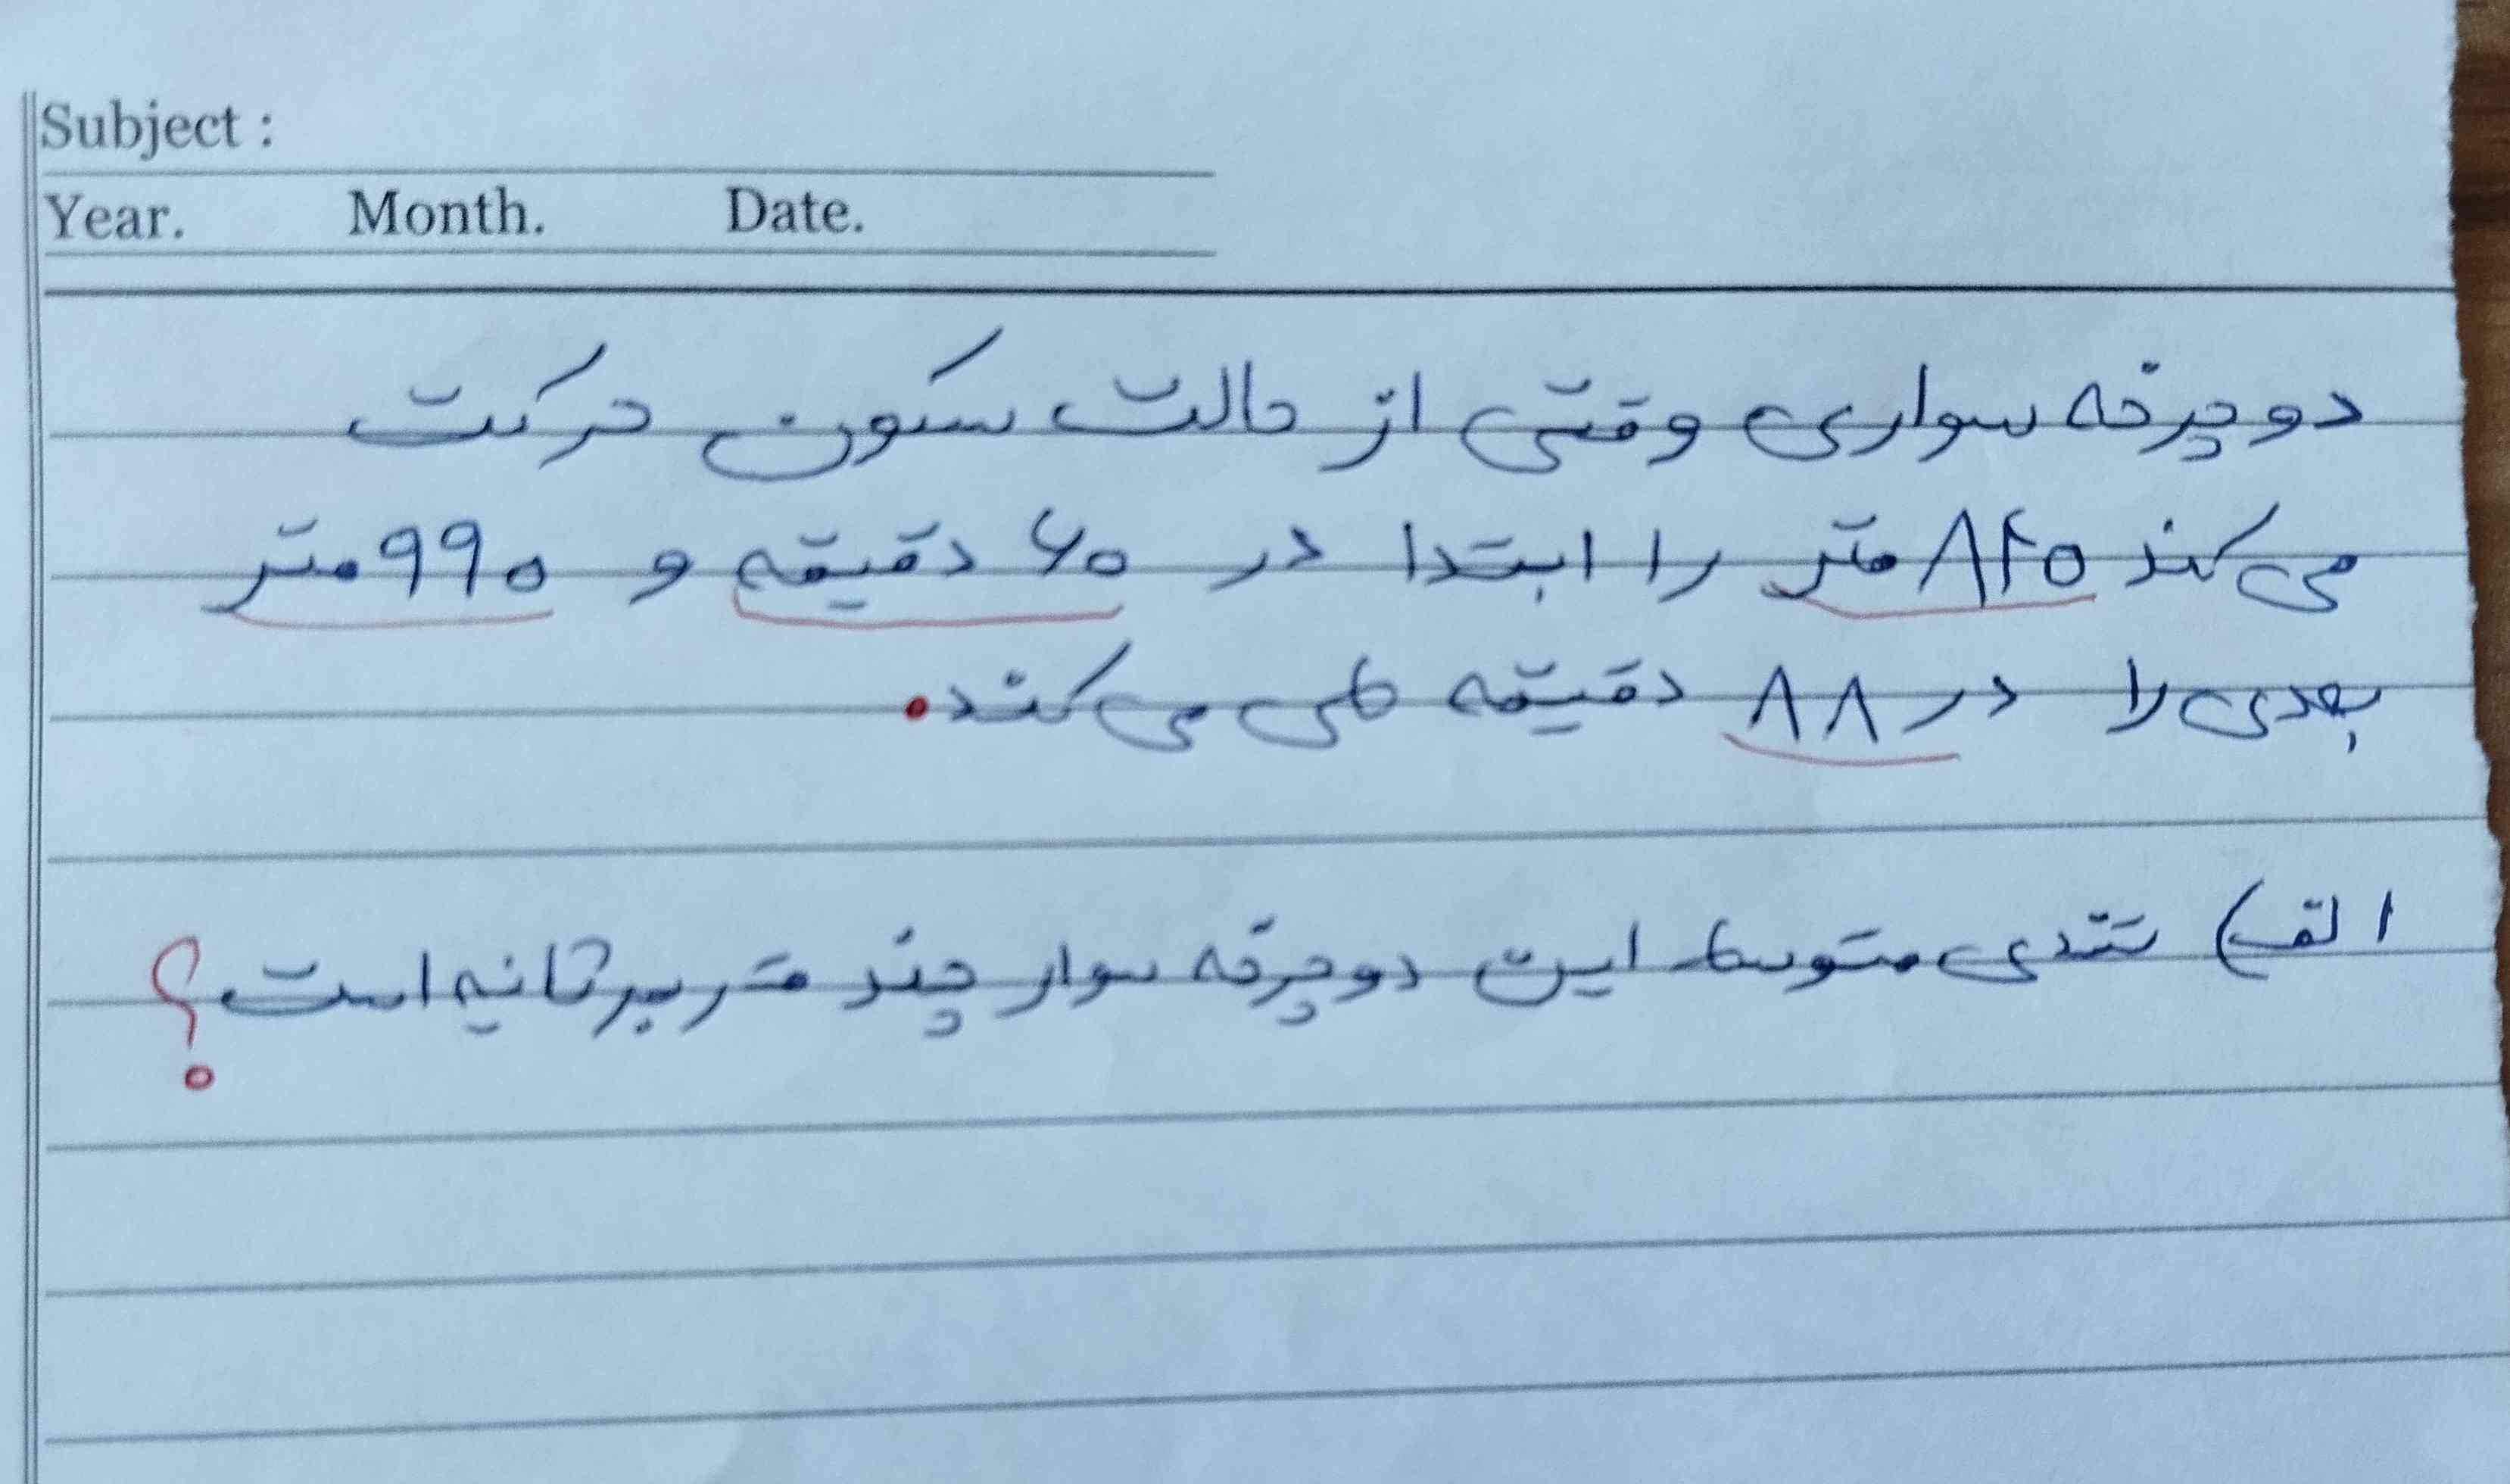 Subject :
Year. Month. Date.
دوچرخه سواری وقتی از حالت سکون حرکت
می‌کند ۸۴۰ متر را ابتدا در ۶۰ دقیقه و ۹۹۰ متر
بعدی را در ۸۸ دقیقه طی می‌کند.
الف) تندی متوسط این دوچرخه سوار چند متر بر ثانیه است؟